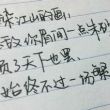 染江山的画,
敌你眉间一点朱砂
覆了天下也罢,
始终不过一场繁